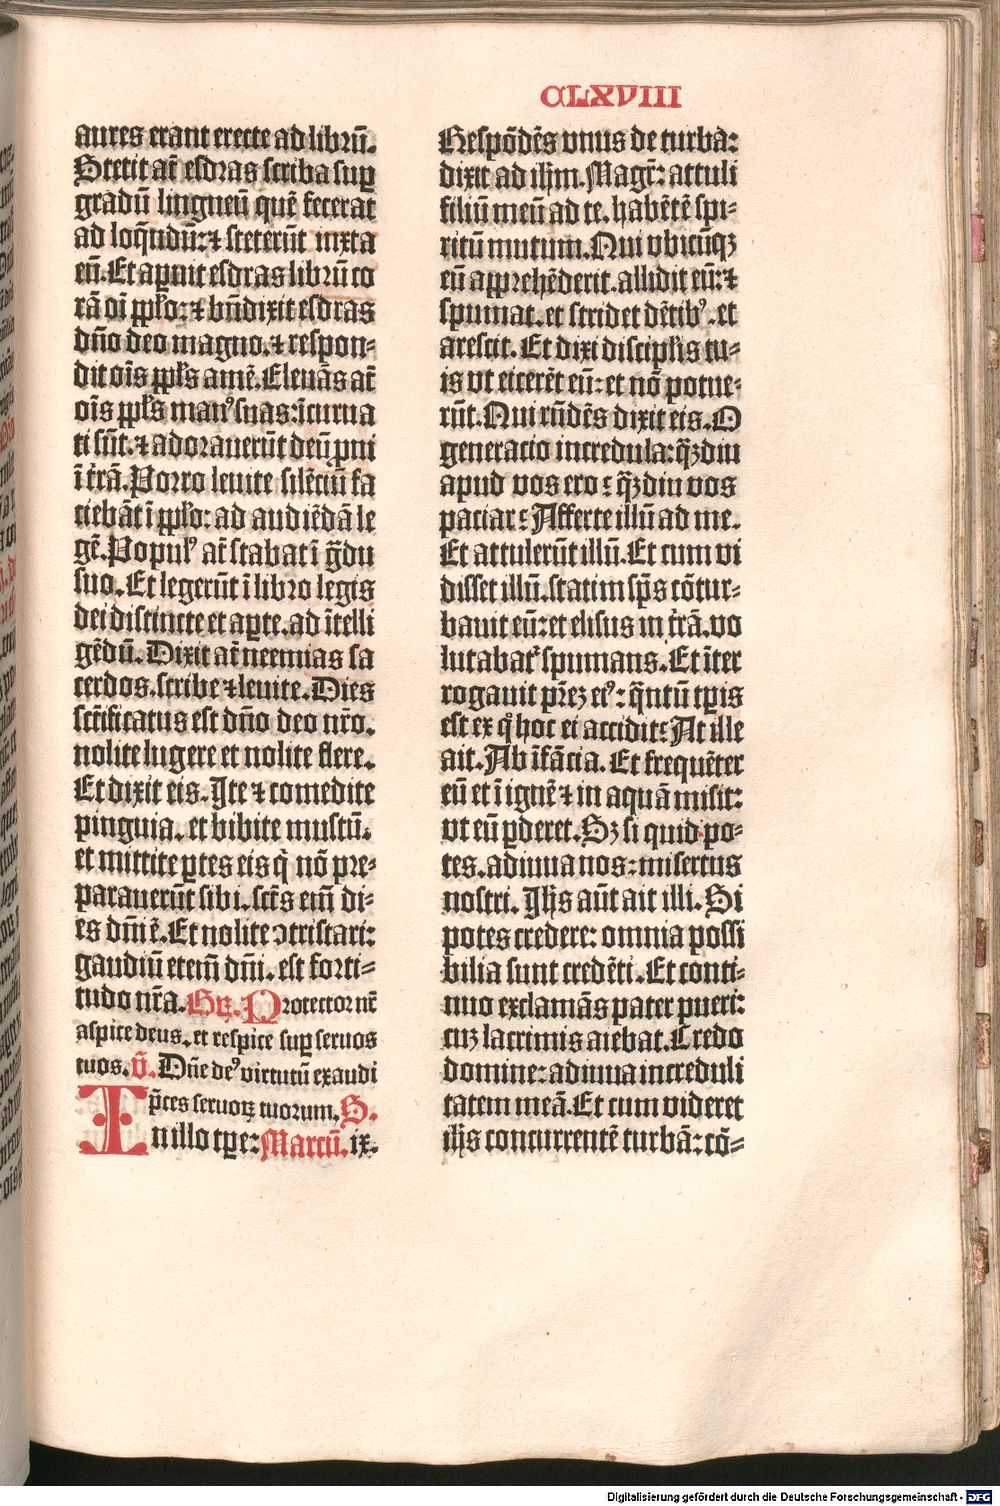 CLXVIII
aures erant erecte ad librū.
Stetit at̄ esdras scriba suꝑ
gradū lingneū quē fecerat
ad loq̄ndū: ⁊ steterūt iuxta
eū. Et aꝑuit esdras librū co
rā oī ꝑpło: ⁊ bn̄dixit esdras
dn̄o deo magno. ⁊ respon⸗
dit oīs ꝑpłs amē. Eleuās at̄
oīs ꝑpłs manꝰ suas: īcurua
ti sūt. ⁊ adorauerūt deū ꝓni
ī t̄rā. Porro leuite silēciū fa
ciebāt ī ꝑpło: ad audiēdā le
gē. Populꝰ at̄ stabat ī g̊du
suo. Et legerūt ī libro legis
dei distincte et aꝑte. ad ītelli
gēdū. Dixit at̄ neemias sa
cerdos. scribe ⁊ leuite. Dies
sc̄tificatus est dn̄o deo nr̄o.
nolite lugere et nolite flere.
Et dixit eis. Ite ⁊ comedite
pinguia. et bibite mustū.
et mittite ꝑtes eis q̇ nō pre⸗
parauerūt sibi. sct̄s em̄ di⸗
es dn̄i ē. Et nolite ↄtristari:
gaudiū etem̄ dn̄i. est forti⸗
tudo nr̄a. Gꝶ. Protector nr̄
aspice deus. et respice suꝑ seruos
tuos. v̄. Dn̄e deꝰ virtutū exaudi
p̄ces seruoꝝ tuorum. S.
In illo tꝑe: Marcū. ix.
Respōdēs vnus de turba:
dixit ad ih̄m. Magr̄: attuli
filiū meū ad te. habētē spi⸗
ritū mutum. Qui vbicūqꝫ
eū apprehēderit. allidit eū: ⁊
spumat. et stridet dētibꝰ. et
arescit. Et dixi discipłis tu⸗
is vt eicerēt eū: et nō potue⸗
rūt. Qui rn̄dēs dixit eis. O
generacio incredula: q̄ꝫdiu
apud vos ero? q̄ꝫdiu vos
paciar? Afferte illū ad me.
Et attulerūt illū. Et cum vi
disset illū. statim sp̄s cōtur⸗
bauit eū: et elisus in t̄rā. vo
lutabat᷑ spumans. Et īter
rogauit pr̄eꝫ eiꝰ: q̄ntū tꝑis
est ex q̊ hoc ei accidit? At ille
ait. Ab īfācia. Et frequēter
eū et ī ignē ⁊ in aquā misit:
vt eū ꝑderet. Sꝫ si quid po⸗
tes. adiuua nos: misertus
nostri. Ih̄s aūt ait illi. Si
potes credere: omnia possi
bilia sunt credēti. Et conti⸗
nuo exclamās pater pueri:
cuꝫ lacrimis aiebat. Credo
domine: adiuua increduli
tatem meā. Et cum videret
ih̄s concurrentē turbā: cō⸗
Digitalisierung gefördert durch die Deutsche Forschungsgemeinschaft - DFG